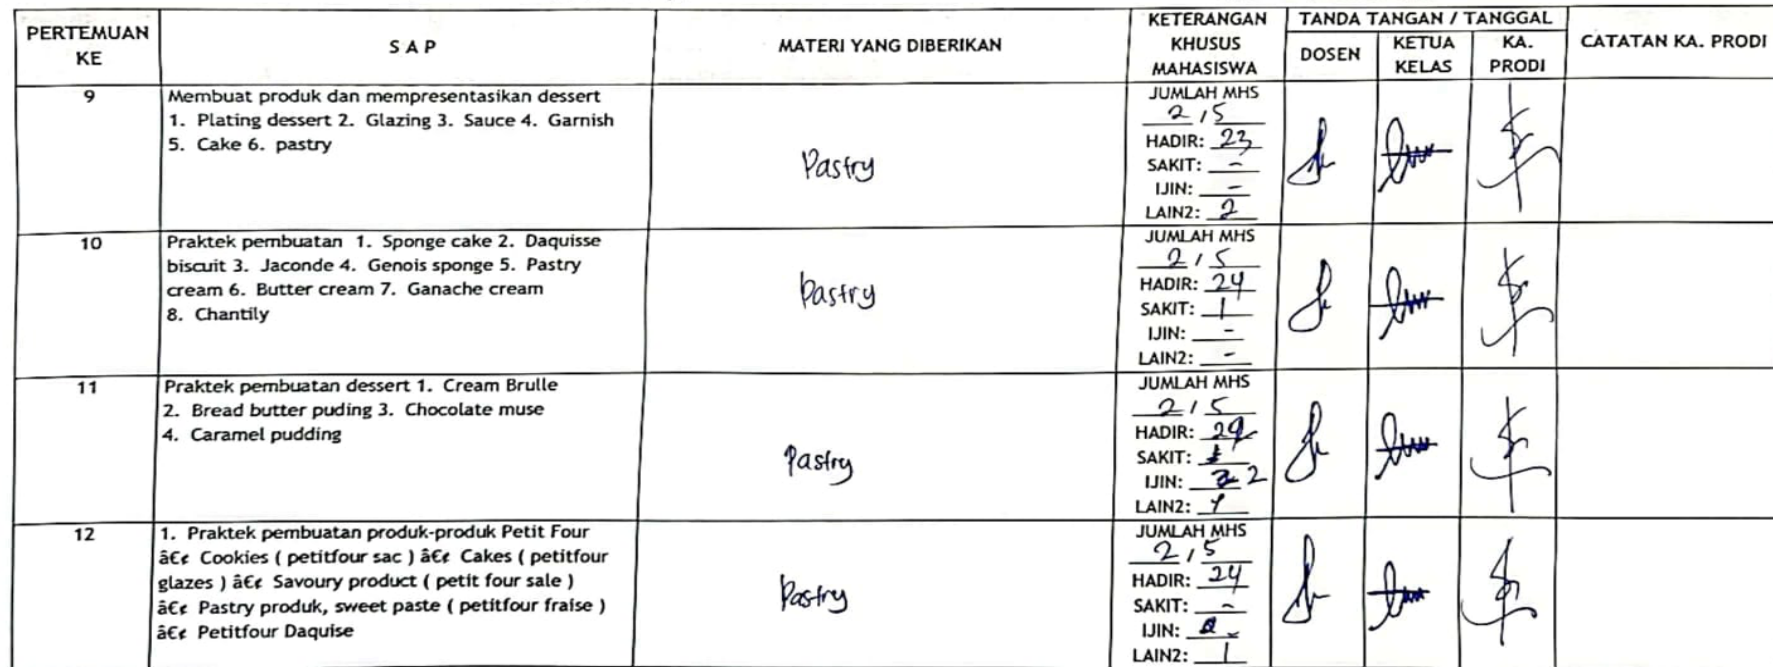 PERTEMUAN KE
S A P
MATERI YANG DIBERIKAN
KETERANGAN KHUSUS MAHASISWA
TANDA TANGAN / TANGGAL
DOSEN
KETUA KELAS
KA. PRODI
CATATAN KA. PRODI
9
Membuat produk dan mempresentasikan dessert
1. Plating dessert 2. Glazing 3. Sauce 4. Garnish
5. Cake 6. pastry
Pastry
JUMLAH MHS
2 / 5
HADIR: 23
SAKIT: -
IJIN: -
LAIN2: 2
10
Praktek pembuatan 1. Sponge cake 2. Daquisse
biscuit 3. Jaconde 4. Genois sponge 5. Pastry
cream 6. Butter cream 7. Ganache cream
8. Chantily
Pastry
JUMLAH MHS
2 / 5
HADIR: 24
SAKIT: 1
IJIN: -
LAIN2: -
11
Praktek pembuatan dessert 1. Cream Brulle
2. Bread butter puding 3. Chocolate muse
4. Caramel pudding
Pastry
JUMLAH MHS
2 / 5
HADIR:
SAKIT:
IJIN: 2
LAIN2:
12
1. Praktek pembuatan produk-produk Petit Four
â€¢ Cookies ( petitfour sac ) â€¢ Cakes ( petitfour
glazes ) â€¢ Savoury product ( petit four sale )
â€¢ Pastry produk, sweet paste ( petitfour fraise )
â€¢ Petitfour Daquise
Pastry
JUMLAH MHS
2 / 5
HADIR: 24
SAKIT: -
IJIN:
LAIN2: 1